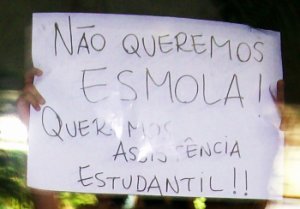 NÃO QUEREMOS
ESMOLA!
QUEREMOS
ASSISTÊNCIA
ESTUDANTIL!!